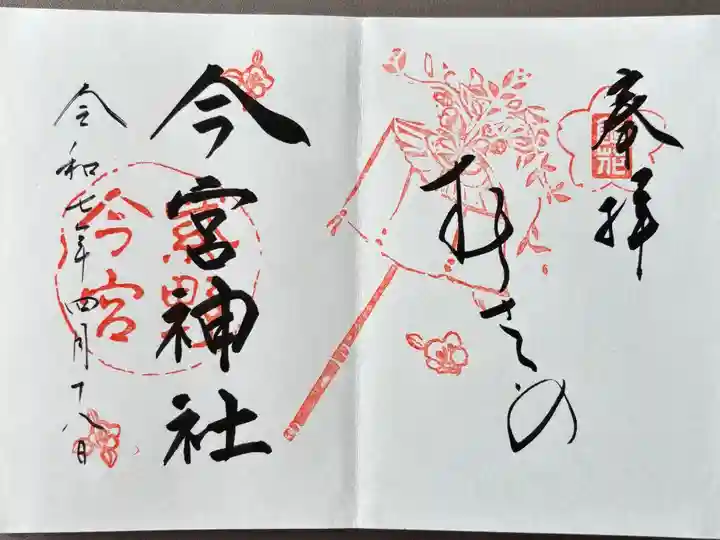 奉拝
むらさきの
今宮神社
令和七年四月十八日
今宮